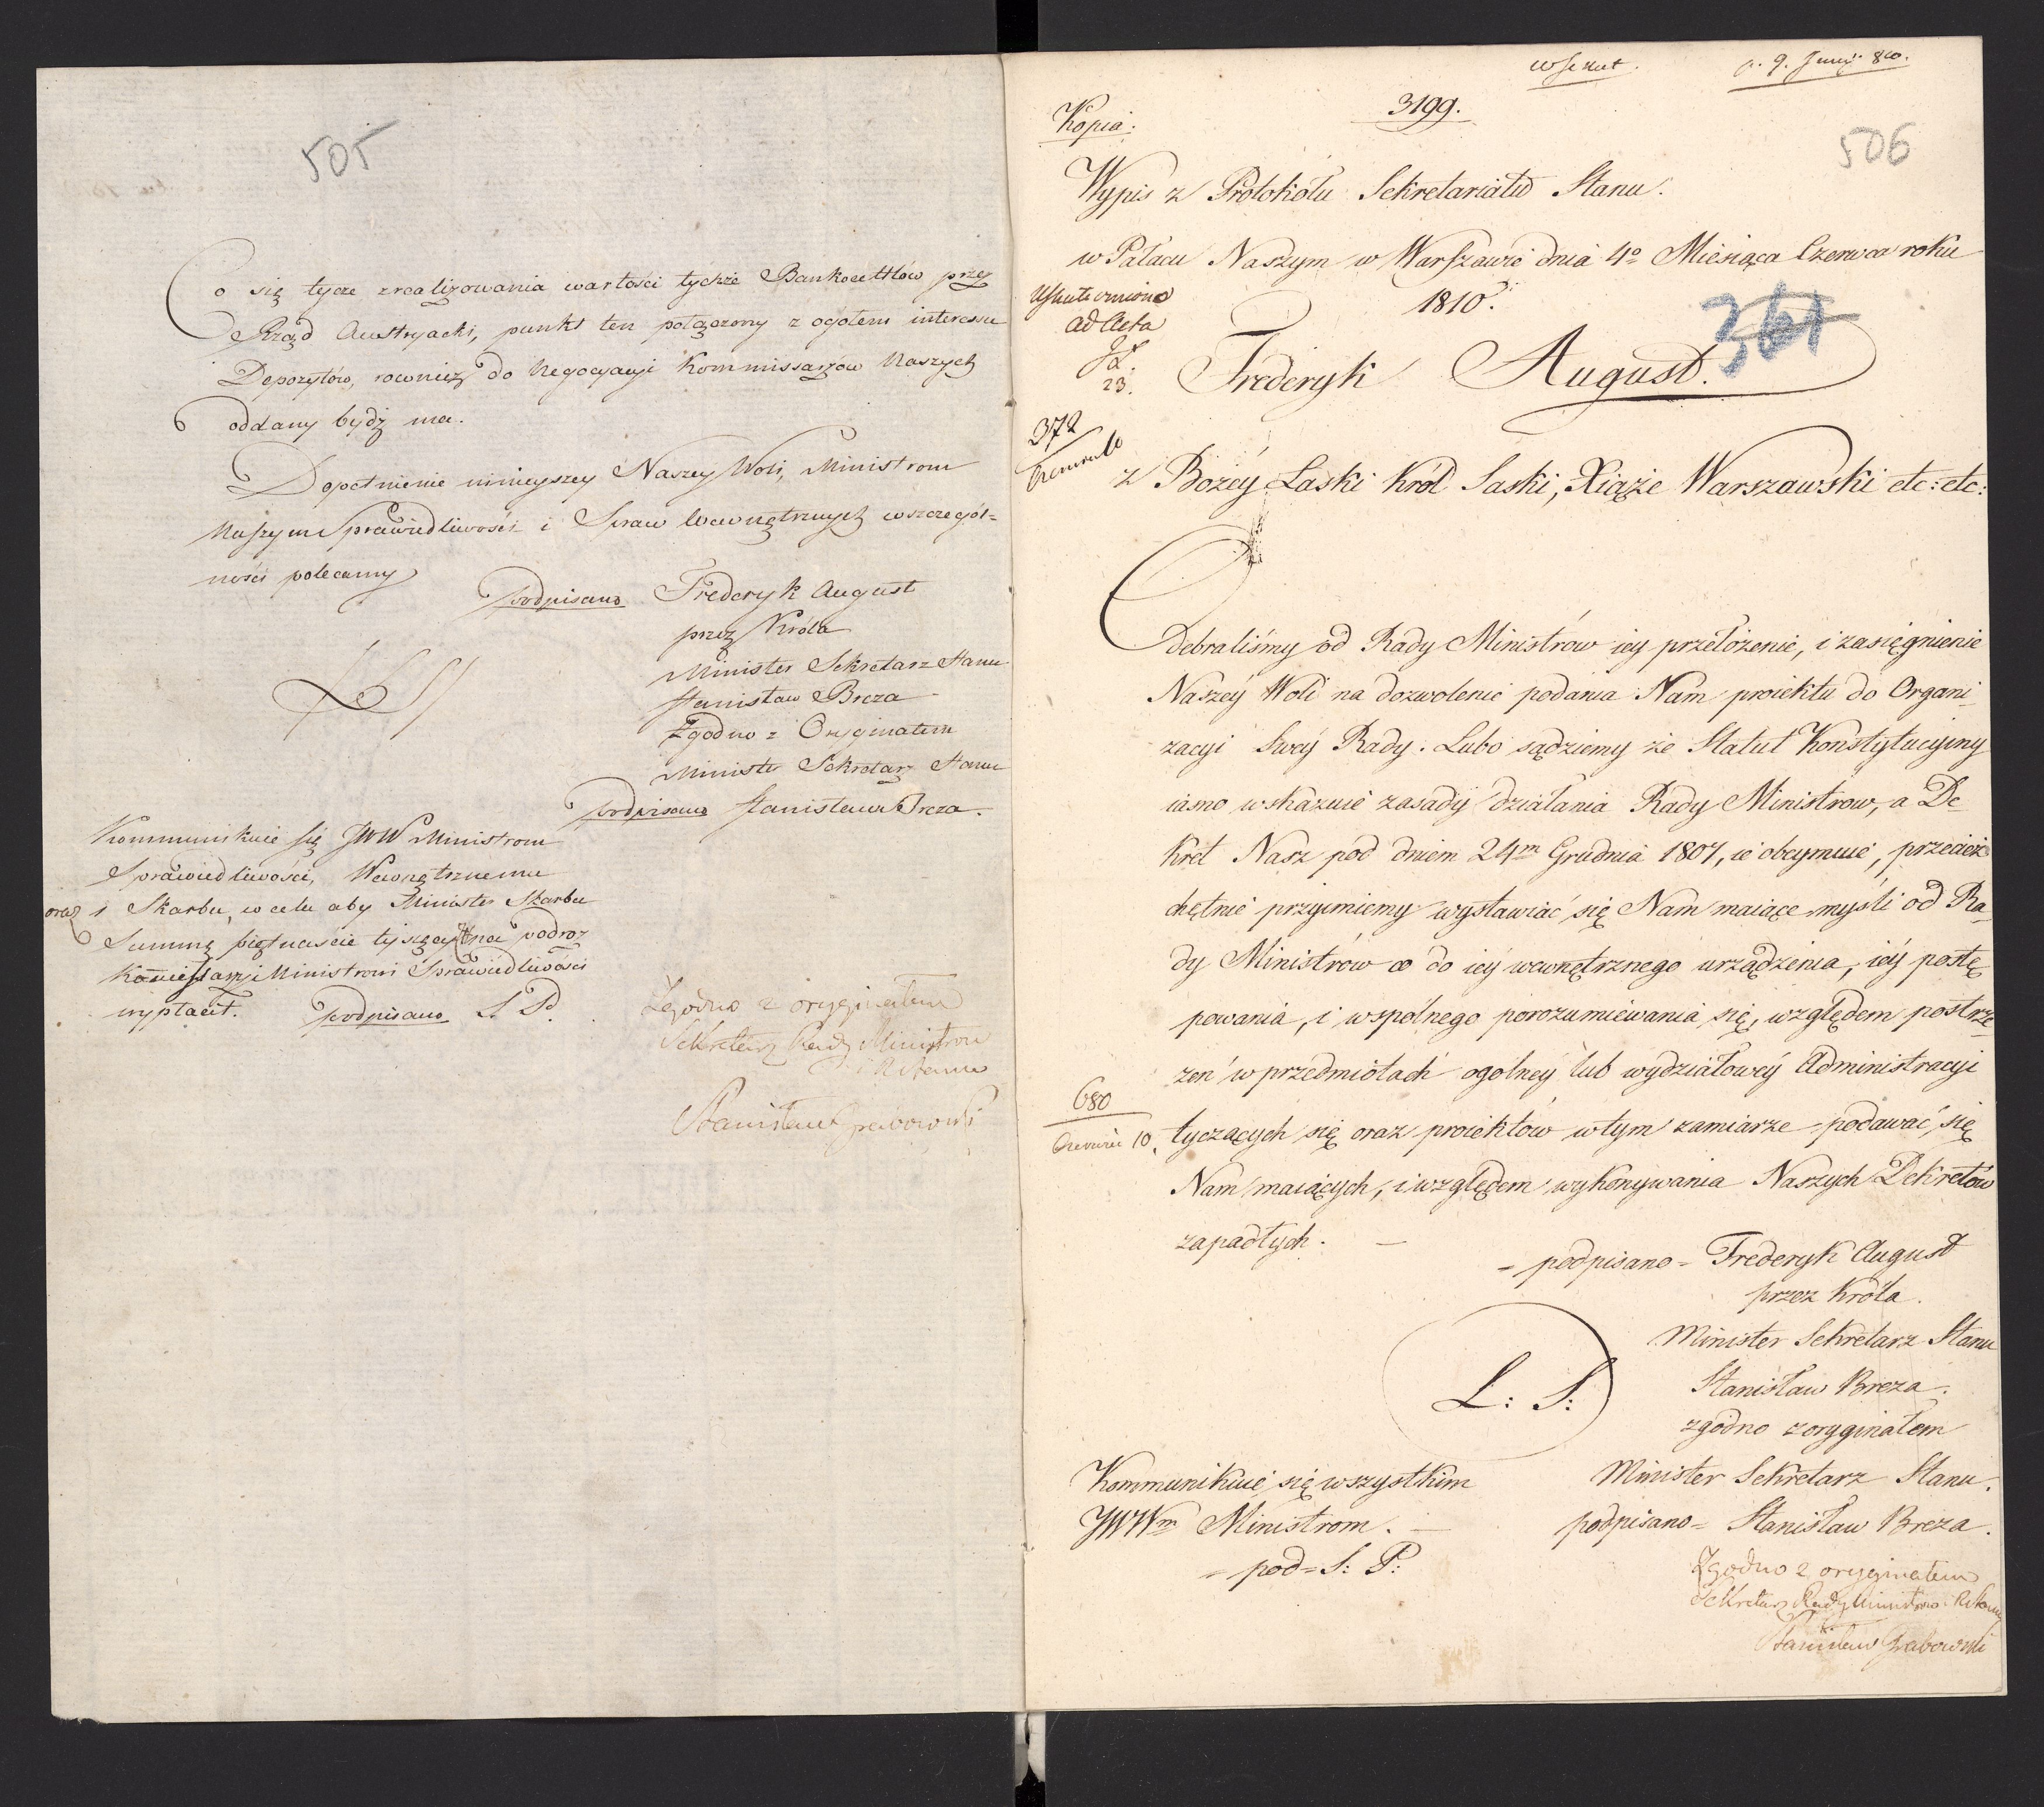 505
Co się tycze zrealizowania wartości tychże Bankocetlów przez
Rząd Austryacki, punkt ten połączony z ogołem interessu
Depozytów, rownież do Negocyacyi Kommissarzów Naszych
oddany bydź ma.
Dopełnienie ninieyszey Naszey Woli, Ministrom
Naszym Sprawiedliwości i Spraw Wewnętrznych wszczegól-
ności polecamy
podpisano Frederyk August
przez Króla
Minister Sekretarz Stanu
Stanisław Breza
Zgodno z Oryginałem
Minister Sekretarz Stanu
podpisano Stanisław Breza.
Kommunikuie się JWW Ministrom
Sprawiedliwości, Wewnętrznemu
oraz i Skarbu, w celu aby Minister Skarbu
Summę piętnaście tysięcy na podroz
Ministrowi Sprawiedliwości
wypłacił. podpisano S. P.
Zgodno z oryginałem
Sekretarz Rady Ministrów
i R Stanu
Stanisław Grabowski
3199.
Kopia:
506
Wypis z Protokółu Sekretariatu Stanu.
w Pałacu Naszym w Warszawie dnia 4º Miesiąca Czerwca roku
1810.
Uskuteczniono
ad Acta
23.
361
Frederyk August.
372
z Bożéy Łaski Król Saski, Xiąże Warszawski etc: etc:
Odebraliśmy od Rady Ministrów iey przełożenie, i zasięgnienie
Naszéy Woli na dozwolenie podania Nam proiektu do Organi-
zacyi Swéy Rady. Lubo sądziemy że Statut Konstytucyiny
iasno wskazuie zasady działania Rady Ministrów, a De
kret Nasz pod dniem 24m Grudnia 1807, ie obeymuie, przecież
chętnie przyimiemy wystawiać się Nam maiące myśli od Ra-
dy Ministrów co do iéy wewnętrznego urządzenia, iéy postę
powania, i wspólnego porozumiewania się, względem postrze-
żeń w przedmiotach ogólnéy lub wydziałowéy Administracyi
680
Czerwca 10.
tyczących się oraz proiektów w tym zamiarze podawać się
Nam maiących, i względem wykonywania Naszych Dekretów
zapadłych. —
= podpisano = Frederyk August
przez Króla.
Minister Sekretarz Stanu
L: S:
Stanisław Breza.
zgodno z oryginałem
Kommunikuie się wszystkim
Minister Sekretarz Stanu.
JWWm Ministrom. —
podpisano = Stanisław Breza.
= pod = S: P:
Zgodno z oryginałem
Sekretarz Rady Ministrów i R Stanu
Stanisław Grabowski